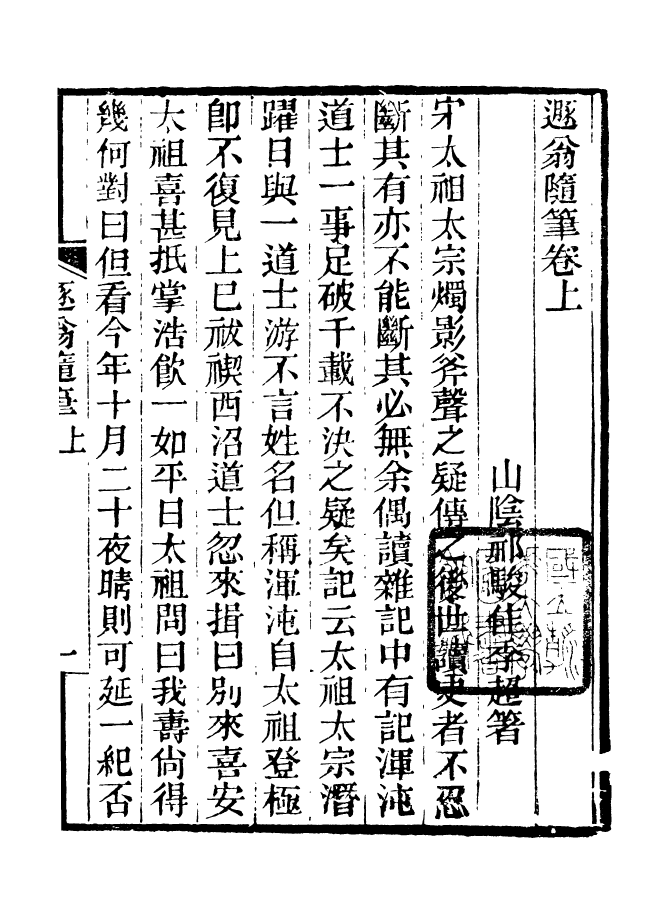 遯翁隨筆卷上
山陰祁駿佳季超著
宋太祖太宗燭影斧聲之疑傳之後世讀史者不忍
斷其有亦不能斷其必無余偶讀雜記中有記渾沌
道士一事足破千載不決之疑矣記云太祖太宗潛
躍日與一道士游不言姓名但稱渾沌自太祖登極
卽不復見上巳祓禊西沼道士忽來揖曰別來喜安
太祖喜甚抵掌浩飮一如平日太祖問曰我壽尙得
幾何對曰但看今年十月二十夜晴則可延一紀否
遯翁隨筆 上 一